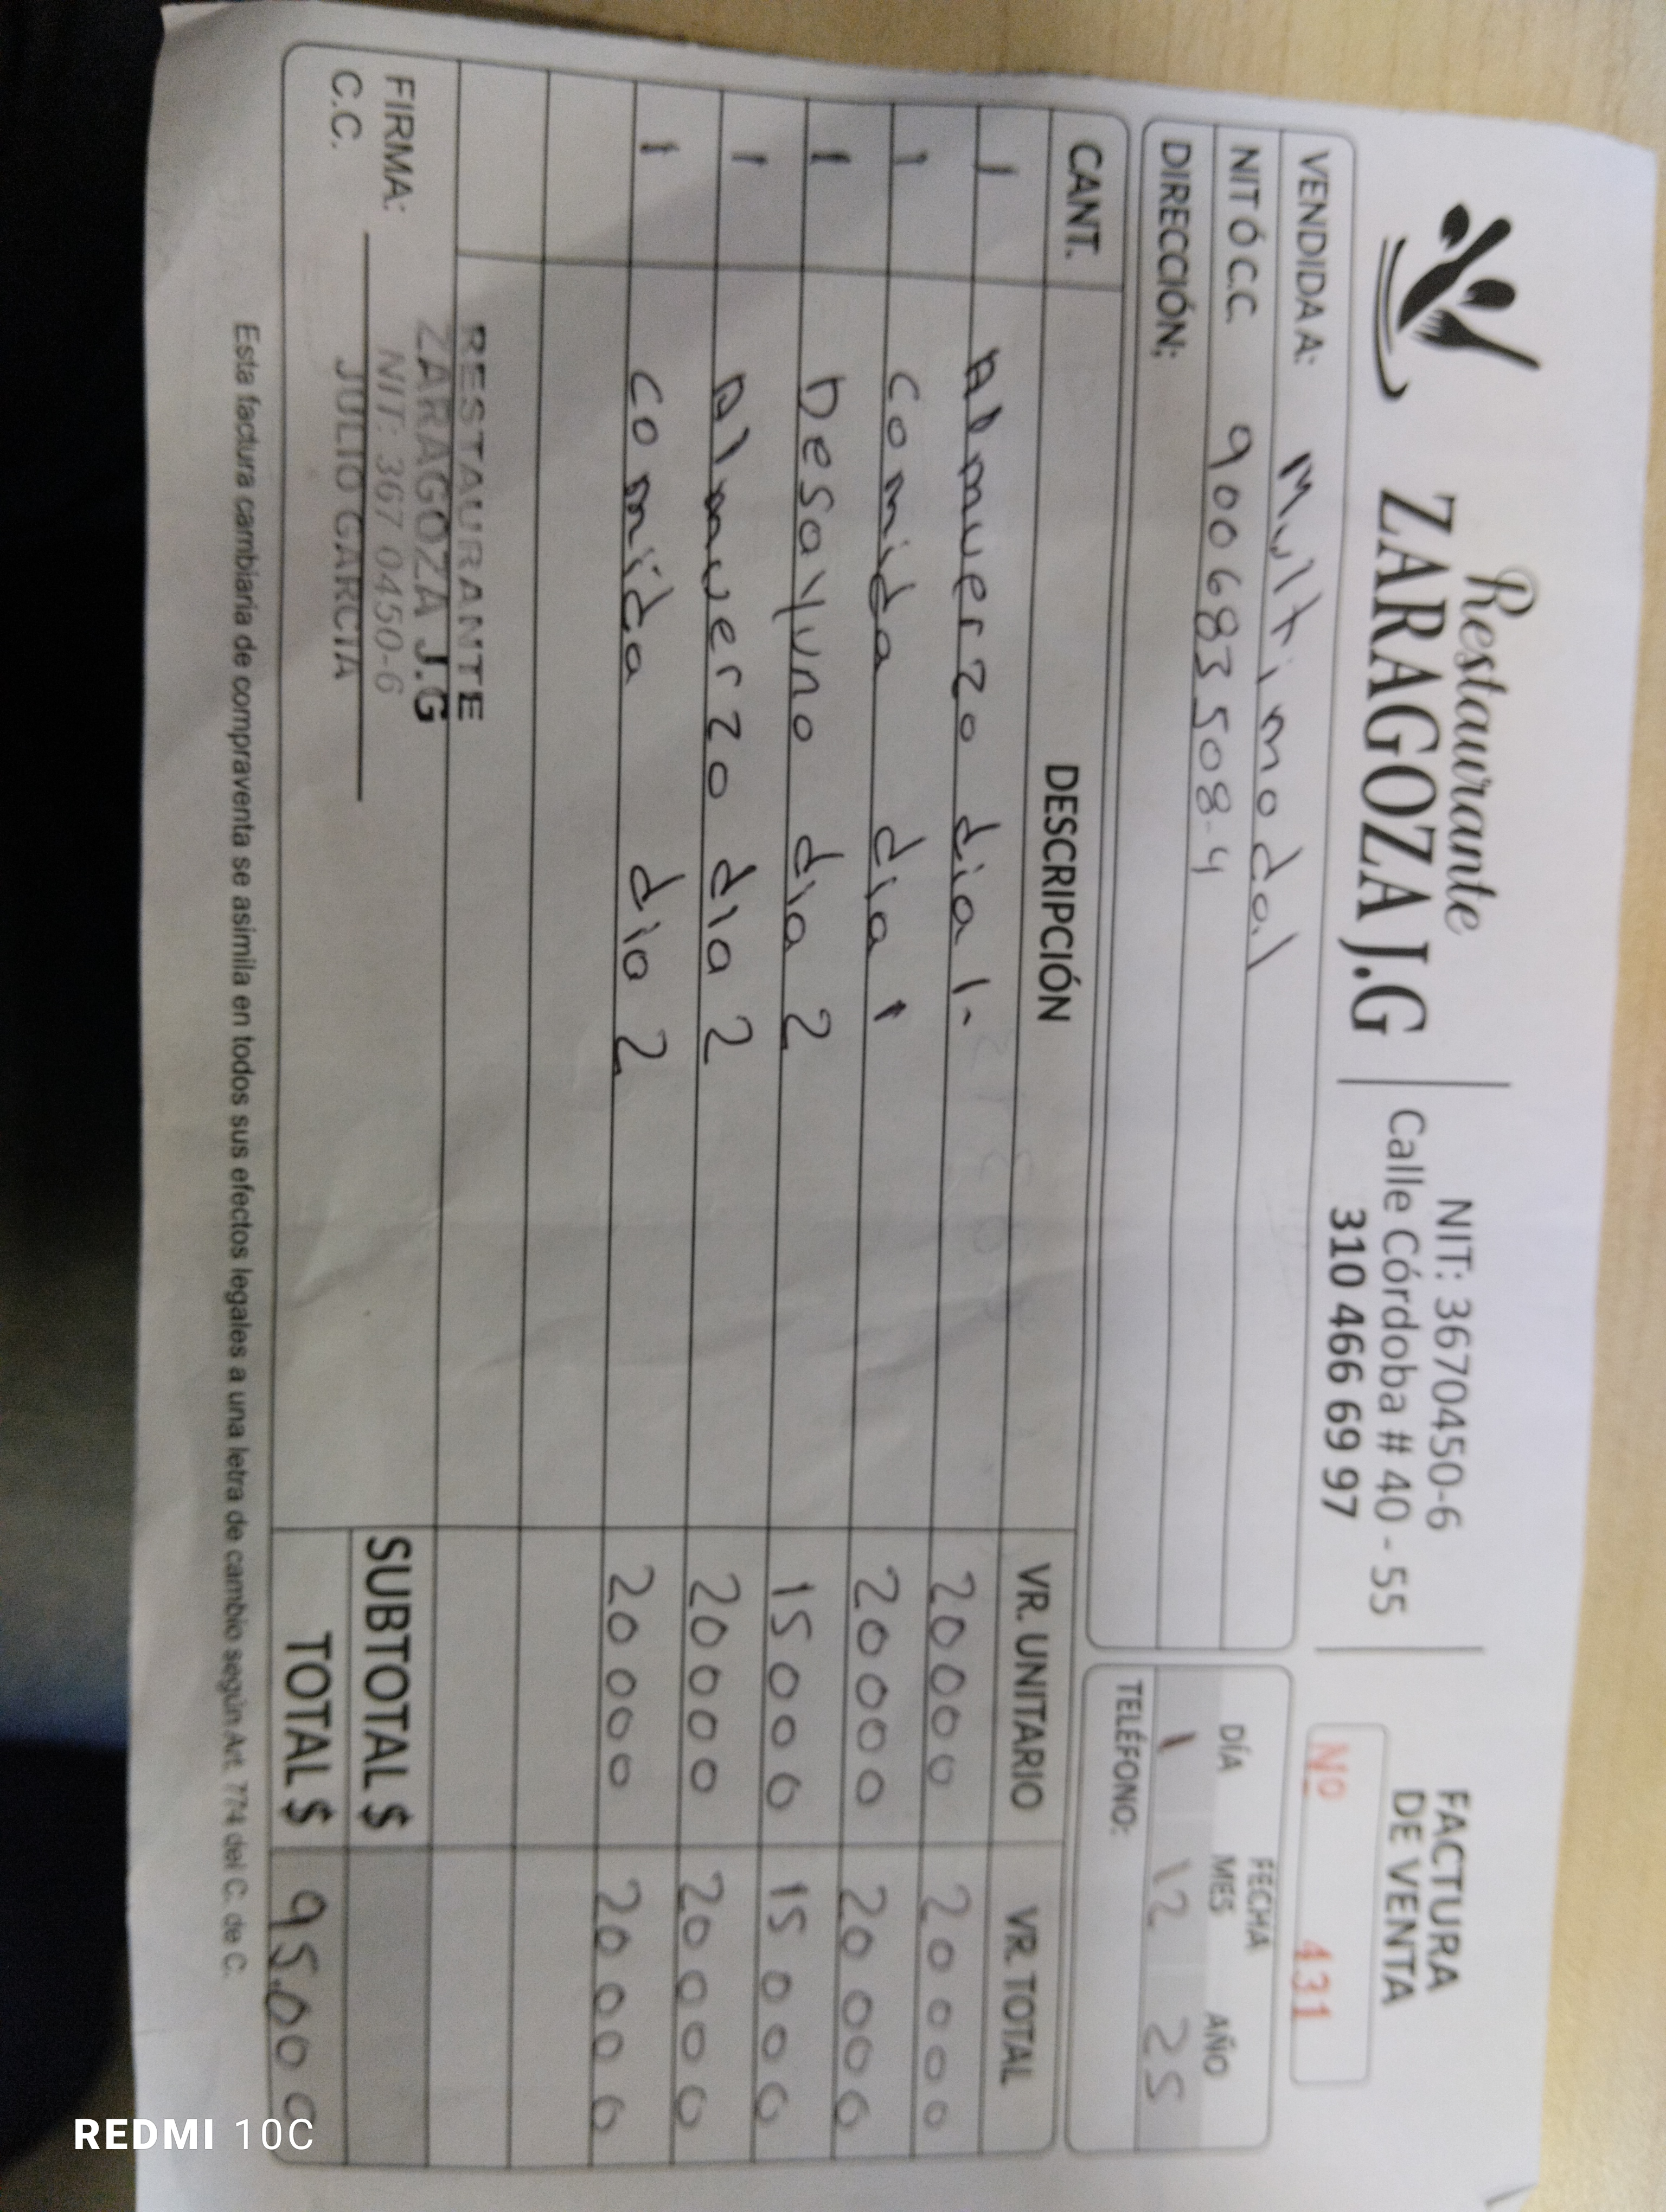 Restaurante
ZARAGOZA J.G
NIT: 3670450-6
Calle Córdoba # 40 - 55
310 466 69 97
FACTURA
DE VENTA
Nº 431
VENDIDA A: Multimodal
NIT Ó C.C. 900683508-4
DIRECCIÓN:
FECHA
DÍA MES AÑO
1 12 25
TELÉFONO:
CANT. DESCRIPCIÓN VR. UNITARIO VR. TOTAL
1 Almuerzo dia 1- 20000 20000
1 comida dia 1 20000 20000
1 Desayuno dia 2 15000 15000
1 Almuerzo dia 2 20000 20000
1 comida dia 2 20000 20000
RESTAURANTE
ZARAGOZA J.G
NIT: 367 0450-6
JULIO GARCIA
FIRMA:
C.C.
SUBTOTAL $
TOTAL $ 95.000
Esta factura cambiaria de compraventa se asimila en todos sus efectos legales a una letra de cambio según Art. 774 del C. de C.
REDMI 10C